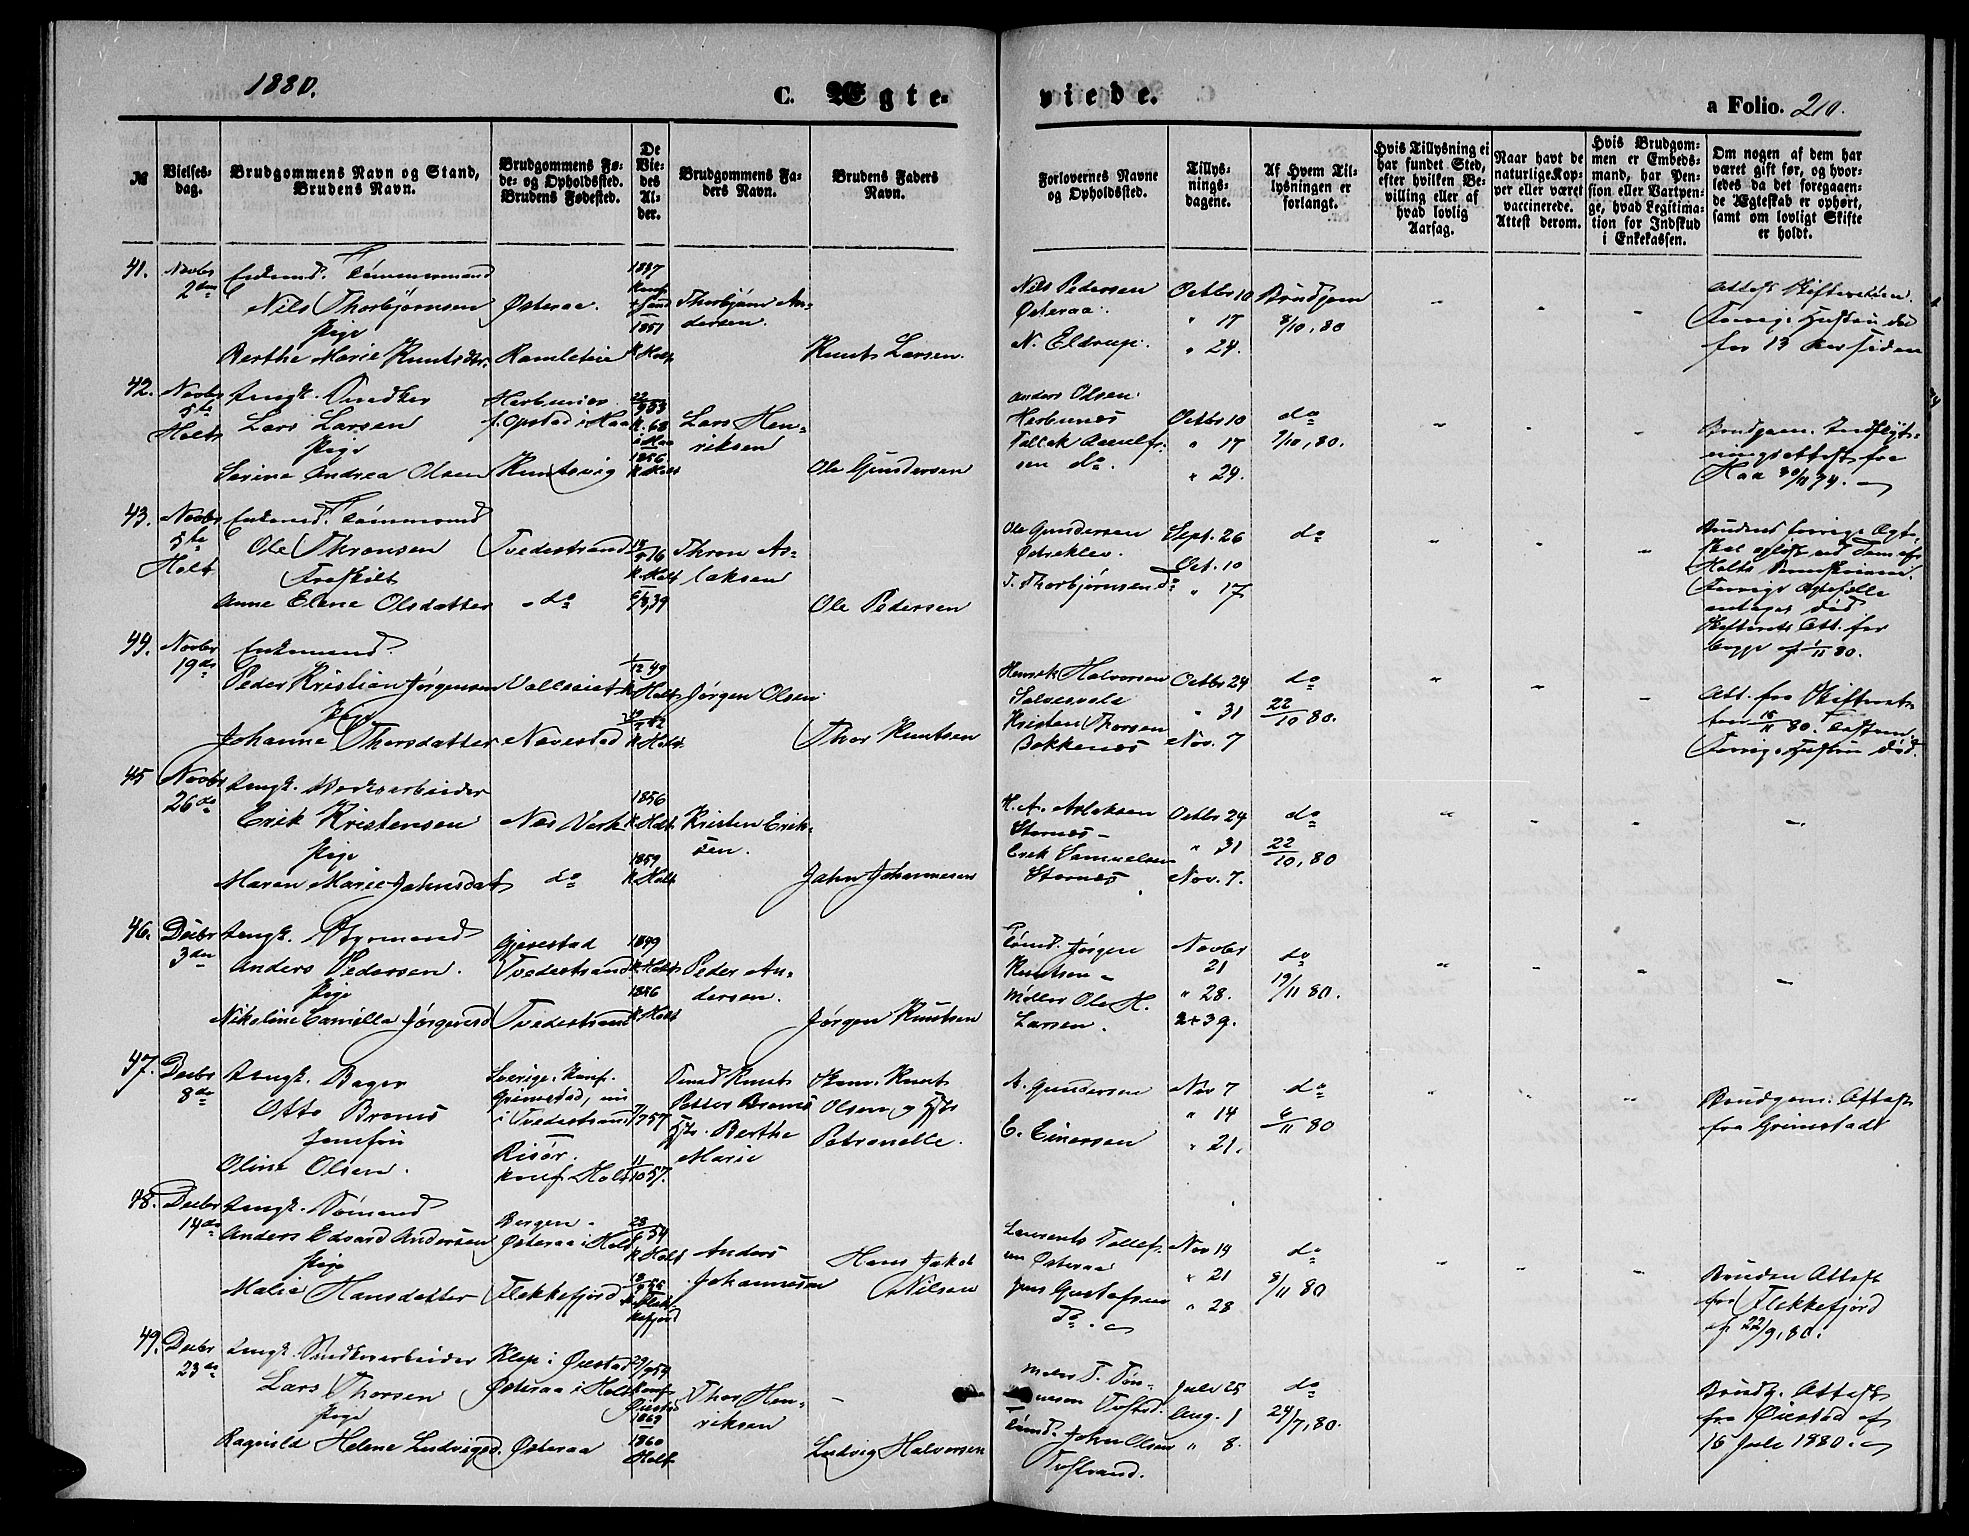 1880.
C. Ægte-
viede.
a Folio. 210.
№
Vielses-
dag.
Brudgommens Navn og Stand,
Brudens Navn.
Brudgommens Fø-
de- og Opholdssted.
Brudens Fødested.
De
Vie-
des
Al-
der.
Brudgommens Fa-
ders Navn.
Brudens Faders
Navn.
Forlovernes Navne
og Opholdssted.
Tillys-
nings-
dagene.
Af Hvem Til-
lysningen er
forlangt.
Hvis Tillysning ei
har fundet Sted,
efter hvilken Be-
villing eller af
hvad lovlig
Aarsag.
Naar havt de
naturlige Kop-
per eller været
vaccinerede.
Attest derom.
Hvis Brudgom-
men er Embeds-
mand, har Pen-
sion eller Vartpen-
ge, hvad Legitima-
tion for Indskud
i Enkekassen.
Om nogen af dem har
været gift før, og hvor-
ledes da det foregaaen-
de Ægteskab er ophørt,
samt om lovligt Skifte
er holdt.
41.
Novbr
2den
Enkemd. Tømmermand
Nils Thorbjørnsen
Pige
Berthe Marie Knutsdtr.
Østeraa.
Ramleteie
1851
K. Holt
Thorbjørn An-
dersen.
Knut Larsen.
Nils Pedersen
Østeraa.
N. Eldrup.
Octbr 10
" 17
" 24.
Brudgom
8/10, 80
Attest Skifteretten.
Forrige Hustru død
for 13 Aar siden
42.
Novbr
5te
Holt
Ungk. Snedker
Lars Larsen
Pige
Serine Andrea Olsen
f. Opstad i Haa
Knutsvig
K. 68
i Haa
1856
K. Holt
Lars Hen-
riksen
Ole Gundersen
Anders Olsen
Octbr 10
" 17
" 24.
do
9/10, 80.
Brudgom. Indflyt-
ningsattest fra
Haa 74.
43.
Novbr
5te
Holt
Enkemd. Tømmermd
Ole Thronsen
Fraskilt
Anne Elene Olsdatter
Tvedestrand
" do
K. Holt
Thron As-
laksen
Ole Pedersen
Ole Gundersen
Østreklev.
T. Thorbjørnsen do
Sept. 26
Oct. 10
" 17
do
Brudens forrige Ægte-
skab opløst ved Dom af
Forrige Ægtefælle
antages død
Skifterets Att. for
begge af 1/11 80.
44.
Novbr
19de
Enkemand
Peder Kristian Jørgensen
Pige
Johanne Thorsdatter
Navestad
1/12 49
K. Holt
K. Holt
Jørgen Olsen
Thor Knutsen
Henrik Halvorsen
Kristen Thorsen
Bokkenes
Octbr 24
" 31
Nov. 7
do
22/10 80.
Att. fra Skifteret-
ten 15/11 80.
Forrige Hustru død.
45
Novbr
26de
Ungk. Værksarbeider
Erik Kristensen
Pige
Maren Marie Jahnsdat
Næs Værk
do
1856
K. Holt
1859
K. Holt
Kristen Erik-
sen.
Jahn Johannesen
H. A. Aslaksen
Stornes
Erik Samuelsen
Stornes
Octbr 24
" 31
Nov. 7.
do
22/10, 80
46.
Decbr
3den
Ungk. Styrmand
Anders Pedersen.
Pige
Nikoline Camilla Jørgensd
Gjerestad
Tvedestrand
Tvedestrand
1849
K. Holt
1856
K. Holt
Peder An-
dersen.
Jørgen Knutsen
Tømd. Jørgen
Knutsen
Møller Ole H.
Larsen.
Novbr
21
" 28.
do
19/11 80.
47.
Decbr
8de
Ungk. Bager
Otto Broms
Jomfru
Oline Olsen.
Sverige. Konf.
Grimestad, nu
i Tvedestrand
Risør.
Konf Holt
11/10 57.
Petter Broms
Berthe
Marie
Olsen
Petronelle.
A. Gundersen
E. Einersen
Nov 7
" 14
" 21.
do
6/11 80
Brudgom: Attest
fra Grimstad
48.
Decbr
14de
Ungk. Sømand
Anders Edvard Andersen
Pige
Malie Hansdatter
Bergen
Østeraa i Holt
Flekkefjord
K. Holt
K. Flek
kefjord
Anders
Johannesen
Hans Jakob
Nilsen
Laurents Tollef-
sen Østeraa
Jens Gustafsen
Do.
Nov 14
" 21
" 28
do
8/11 80
Bruden Attest
fra Flekkefjord
af 22/9, 80.
49.
Decbr
23de
Ungk. Snedkerarbeider
Lars Thorsen
Pige
Ragnild Helene Ludvigsd.
Klep i Øiestad
Østeraa i Holt
Østeraa
Konf.
Øiestad
1869
1860
Holt
Thor Hen-
riksen
Ludvig Halvorsen
Tømd. John Olsen
Juli 25
Aug. 1
" 8.
do
24/7, 80.
Brudg. Attest
fra Øiestad af
16 Juli 1880.